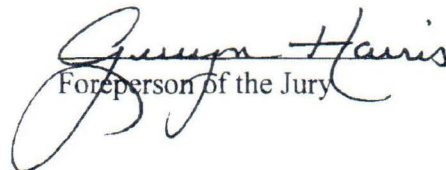 Harris
Foreperson of the Jury